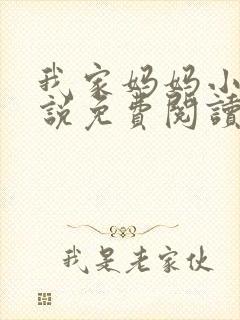 我家妈妈小
说免費閱讀
我是老家伙